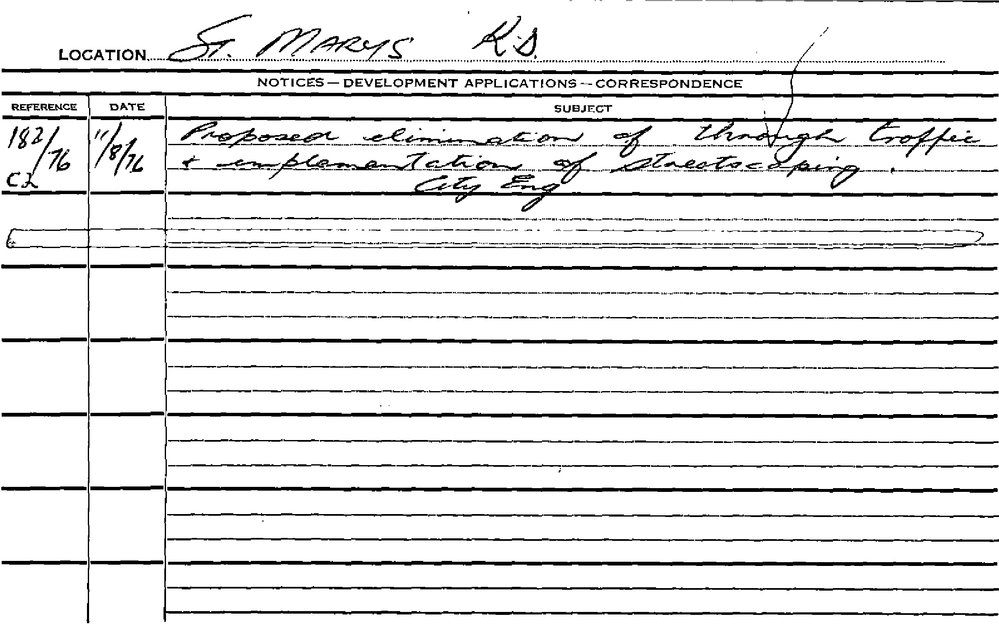 LOCATION St. MARYS K.S.
NOTICES — DEVELOPMENT APPLICATIONS — CORRESPONDENCE
REFERENCE DATE SUBJECT
182/76 11/8/76 Proposed elimination of through traffic
C2 + implementation of Streetscaping.
City Eng